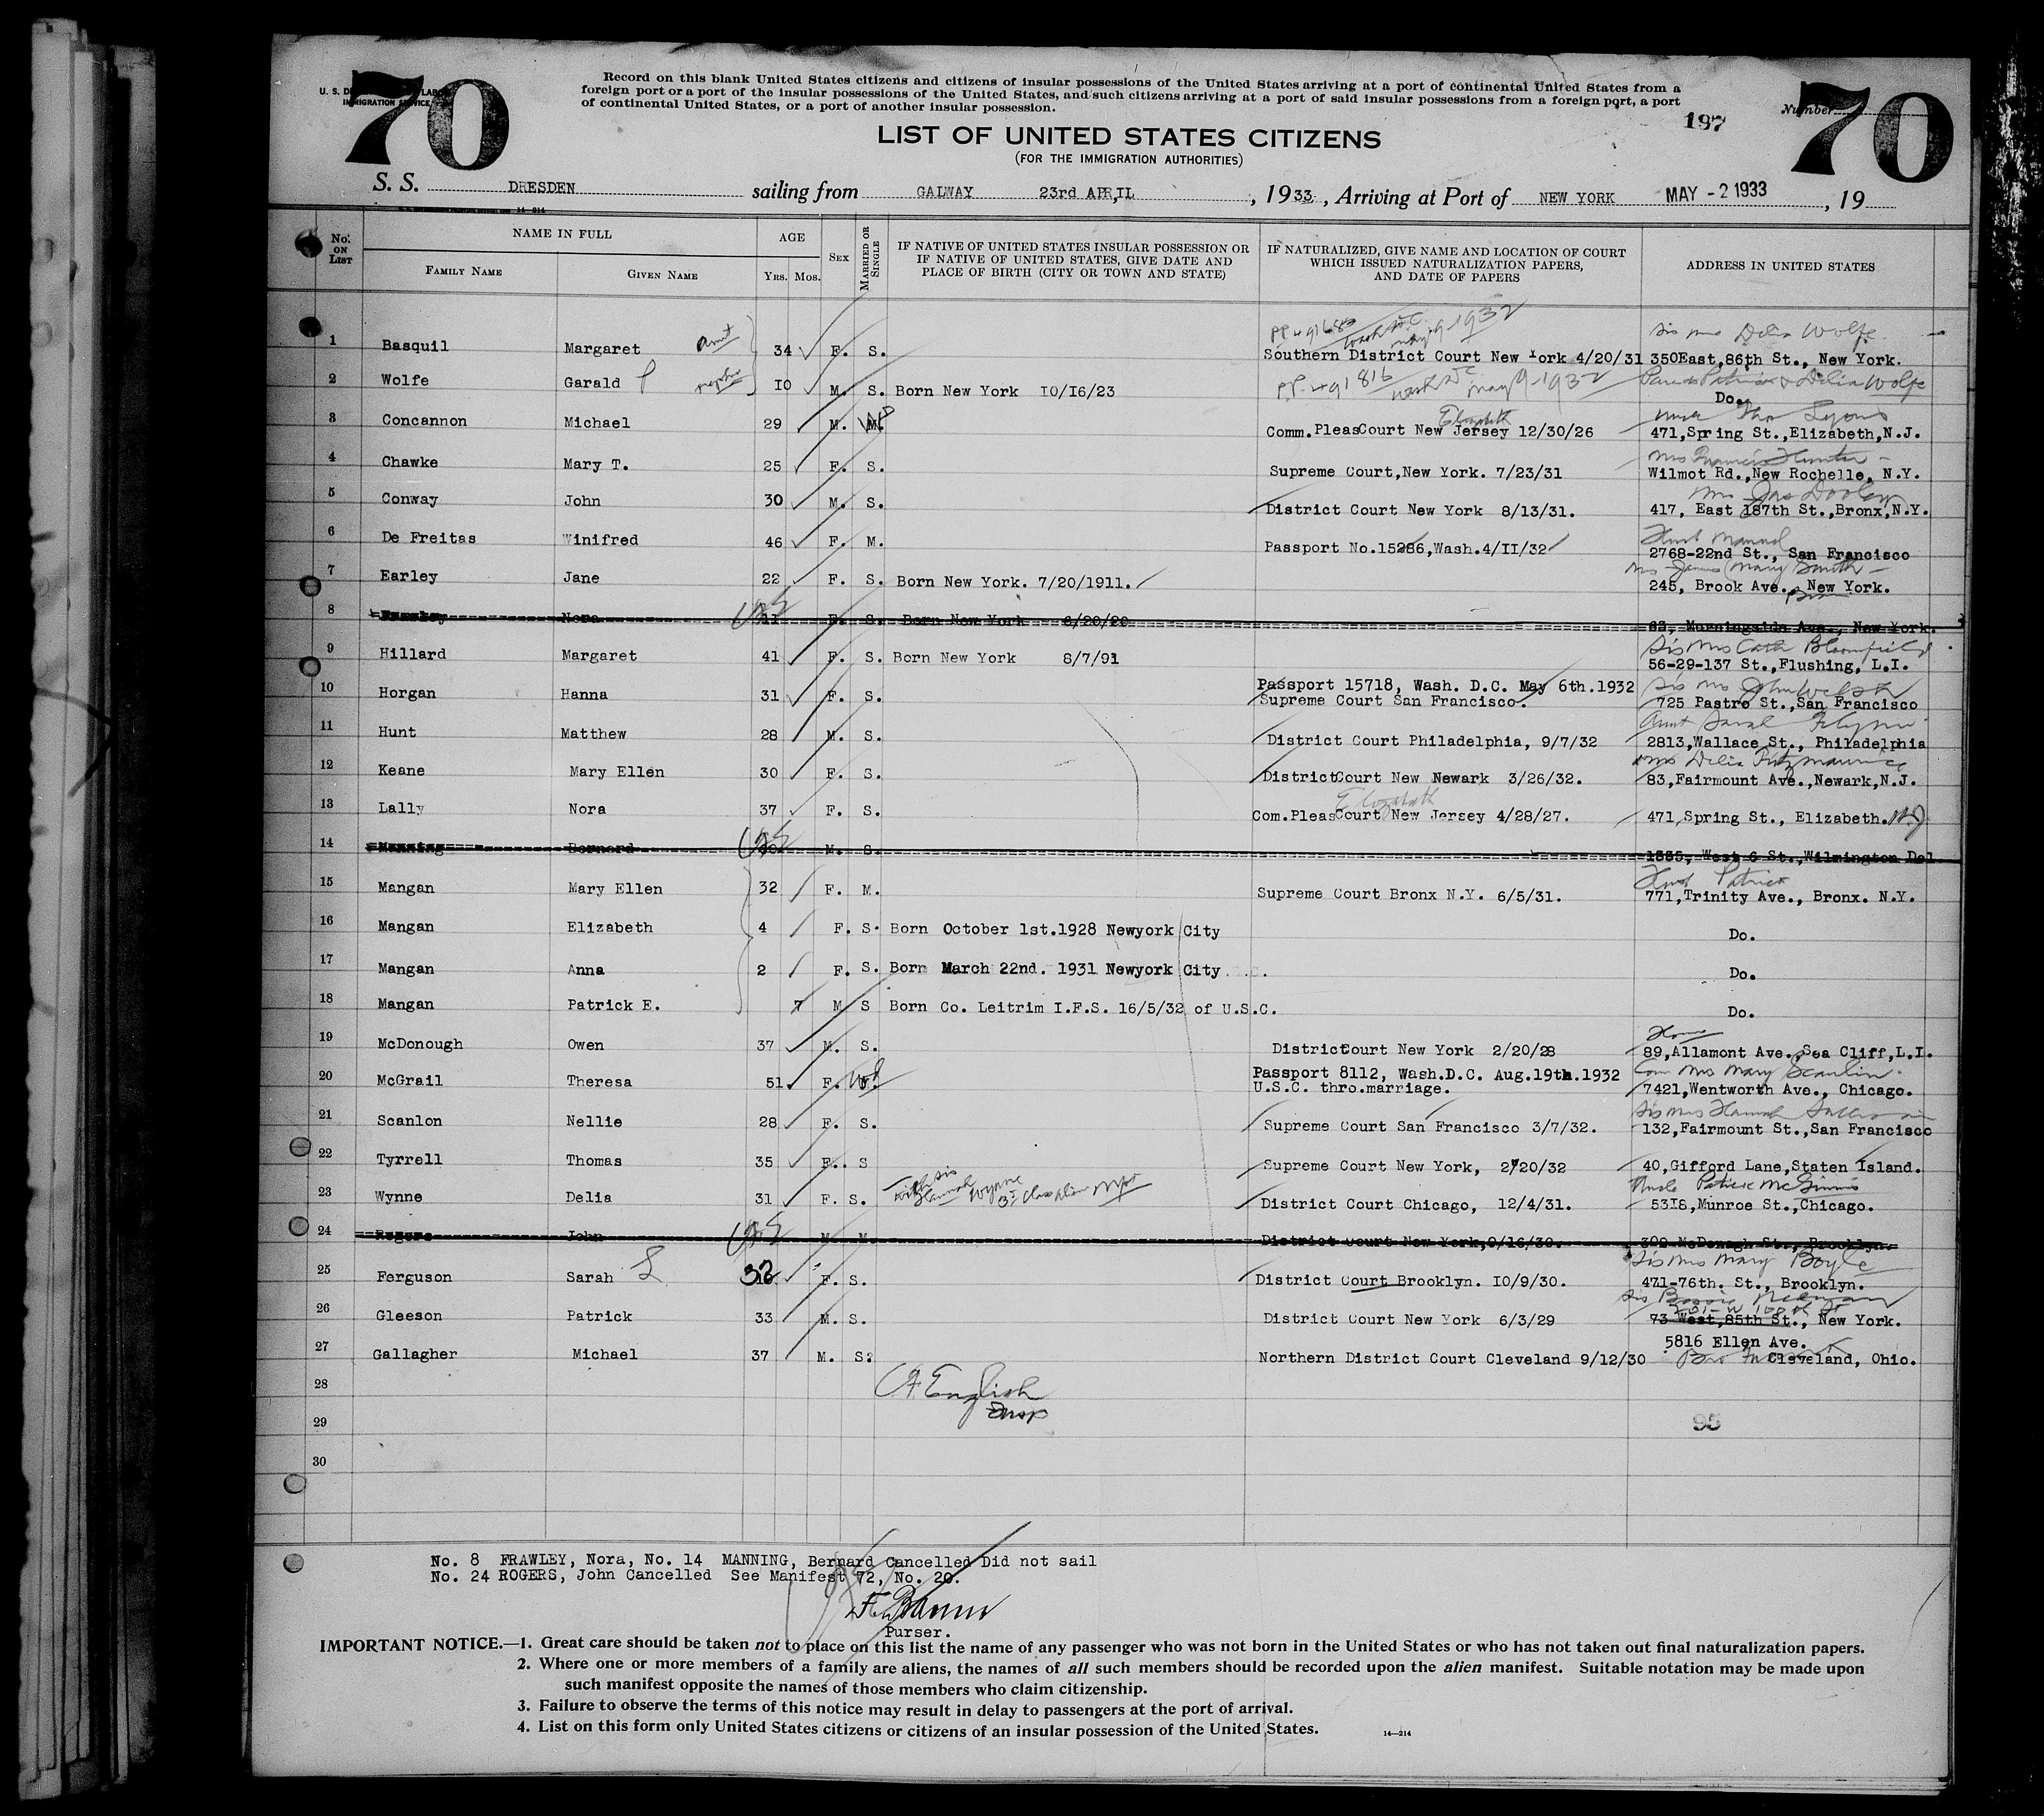 70
U. S. DE LABOR
IMMIGRATION SERVICE
Record on this blank United States citizens and citizens of insular possessions of the United States arriving at a port of continental United States from a
foreign port or a port of the insular possessions of the United States, and such citizens arriving at a port of said insular possessions from a foreign port, a port
of continental United States, or a port of another insular possession.
187
Number
70
LIST OF UNITED STATES CITIZENS
(FOR THE IMMIGRATION AUTHORITIES)
S. S. DRESDEN sailing from GALWAY 23rd APRIL, 1933, Arriving at Port of NEW YORK MAY -2 1933, 19
No. ON LIST
NAME IN FULL
FAMILY NAME
GIVEN NAME
AGE
YRS. MOS.
SEX
MARRIED OR SINGLE
IF NATIVE OF UNITED STATES INSULAR POSSESSION OR
IF NATIVE OF UNITED STATES, GIVE DATE AND
PLACE OF BIRTH (CITY OR TOWN AND STATE)
IF NATURALIZED, GIVE NAME AND LOCATION OF COURT
WHICH ISSUED NATURALIZATION PAPERS,
AND DATE OF PAPERS
ADDRESS IN UNITED STATES
Wash DC May 9 1932 sis Mrs Delia Wolfe
1 Basquil Margaret aunt 34 F. S. Southern District Court New York 4/20/31 350East,86th St., New York.
PP 491816 Wash DC May 9-1932 Parents Patrick & Delia Wolfe
2 Wolfe Garald P nephew 10 M. S. Born New York 10/16/23 Do.
Elizabeth Lyons
3 Concannon Michael 29 M. M. Comm.PleasCourt New Jersey 12/30/26 471,Spring St.,Elizabeth,N.J.
Mrs Francis Hunter
4 Chawke Mary T. 25 F. S. Supreme Court,New York. 7/23/31 Wilmot Rd.,New Rochelle, N.Y.
Mrs Jas
5 Conway John 30 M. S. District Court New York 8/13/31. 417, East 187th St.,Bronx,N.Y.
Husb Manuel
6 De Freitas Winifred 46 F. M. Passport No.15286,Wash.4/II/32 2768-22nd St., San Francisco
Mrs James Mary Smith
7 Earley Jane 22 F. S. Born New York. 7/20/1911. 245, Brook Ave., New York.
Bronx
8 Frawley Nora 11 F. S. Born New York 8/20/20 63, Morningside Ave., New York.
Sis Mrs Cath Bloomfield
9 Hillard Margaret 41 F. S. Born New York 8/7/91 56-29-137 St.,Flushing, L.I.
Passport 15718, Wash. D.C. May 6th.1932 sis Mrs John
10 Horgan Hanna 31 F. S. Supreme Court San Francisco. 725 Pastro St.,San Francisco
aunt Sarah Flynn
11 Hunt Matthew 28 M. S. District Court Philadelphia, 9/7/32 2813,Wallace St., Philadelphia
Mrs Delia Fitzmaurice
12 Keane Mary Ellen 30 F. S. DistrictCourt New Newark 3/26/32. 83,Fairmount Ave.,Newark,N.J.
Elizabeth
13 Lally Nora 37 F. S. Com.PleasCourt New Jersey 4/28/27. 471,Spring St., Elizabeth. N.J
14 Manning Bernard M. S. West 6 St.,Wilmington Del
Husb Patrick
15 Mangan Mary Ellen 32 F. M. Supreme Court Bronx N.Y. 6/5/31. 771,Trinity Ave., Bronx. N.Y.
16 Mangan Elizabeth 4 F. S. Born October 1st.1928 Newyork City Do.
17 Mangan Anna 2 F. S. Born March 22nd. 1931 Newyork City Do.
18 Mangan Patrick E. 7 M S Born Co. Leitrim I.F.S. 16/5/32 of U.S.C. Do.
Home
19 McDonough Owen 37 M. S. DistrictCourt New York 2/20/28 89,Allamont Ave.,Sea Cliff,L.I.
Passport 8112, Wash.D.C. Aug.19th.1932 Mrs Mary Scanlin
20 McGrail Theresa 51. F. Wd U.S.C. thro.marriage. 7421,Wentworth Ave., Chicago.
Sis Mrs Hannah
21 Scanlon Nellie 28 F. S. Supreme Court San Francisco 3/7/32. 132,Fairmount St.,San Francisco
22 Tyrrell Thomas 35 F.. S Supreme Court New York, 2/20/32 40,Gifford Lane,Staten Island.
with sis Hannah Wynne 3d class alien Uncle Patrick McGinnis
23 Wynne Delia 31 F. S. District Court Chicago, 12/4/31. 5318,Munroe St.,Chicago.
24 Rogers John M. M. District Court New York,9/16/30. 309 McDonagh St., Brooklyn.
Sis Mrs Mary Boyle
25 Ferguson Sarah L 32 F. S. District Court Brooklyn. 10/9/30. 471-76th. St., Brooklyn.
sis
26 Gleeson Patrick 33 M. S. District Court New York 6/3/29 73 West,85th St., New York.
5816 Ellen Ave.
27 Gallagher Michael 37 M. S. Northern District Court Cleveland 9/12/30 Cleveland, Ohio.
28
English
Insp
29
95
30
No. 8 FRAWLEY, Nora, No. 14 MANNING, Bernard Cancelled Did not sail
No. 24 ROGERS, John Cancelled See Manifest 72, No. 20.
Purser.
IMPORTANT NOTICE.—1. Great care should be taken not to place on this list the name of any passenger who was not born in the United States or who has not taken out final naturalization papers.
2. Where one or more members of a family are aliens, the names of all such members should be recorded upon the alien manifest. Suitable notation may be made upon
such manifest opposite the names of those members who claim citizenship.
3. Failure to observe the terms of this notice may result in delay to passengers at the port of arrival.
4. List on this form only United States citizens or citizens of an insular possession of the United States.
14—214